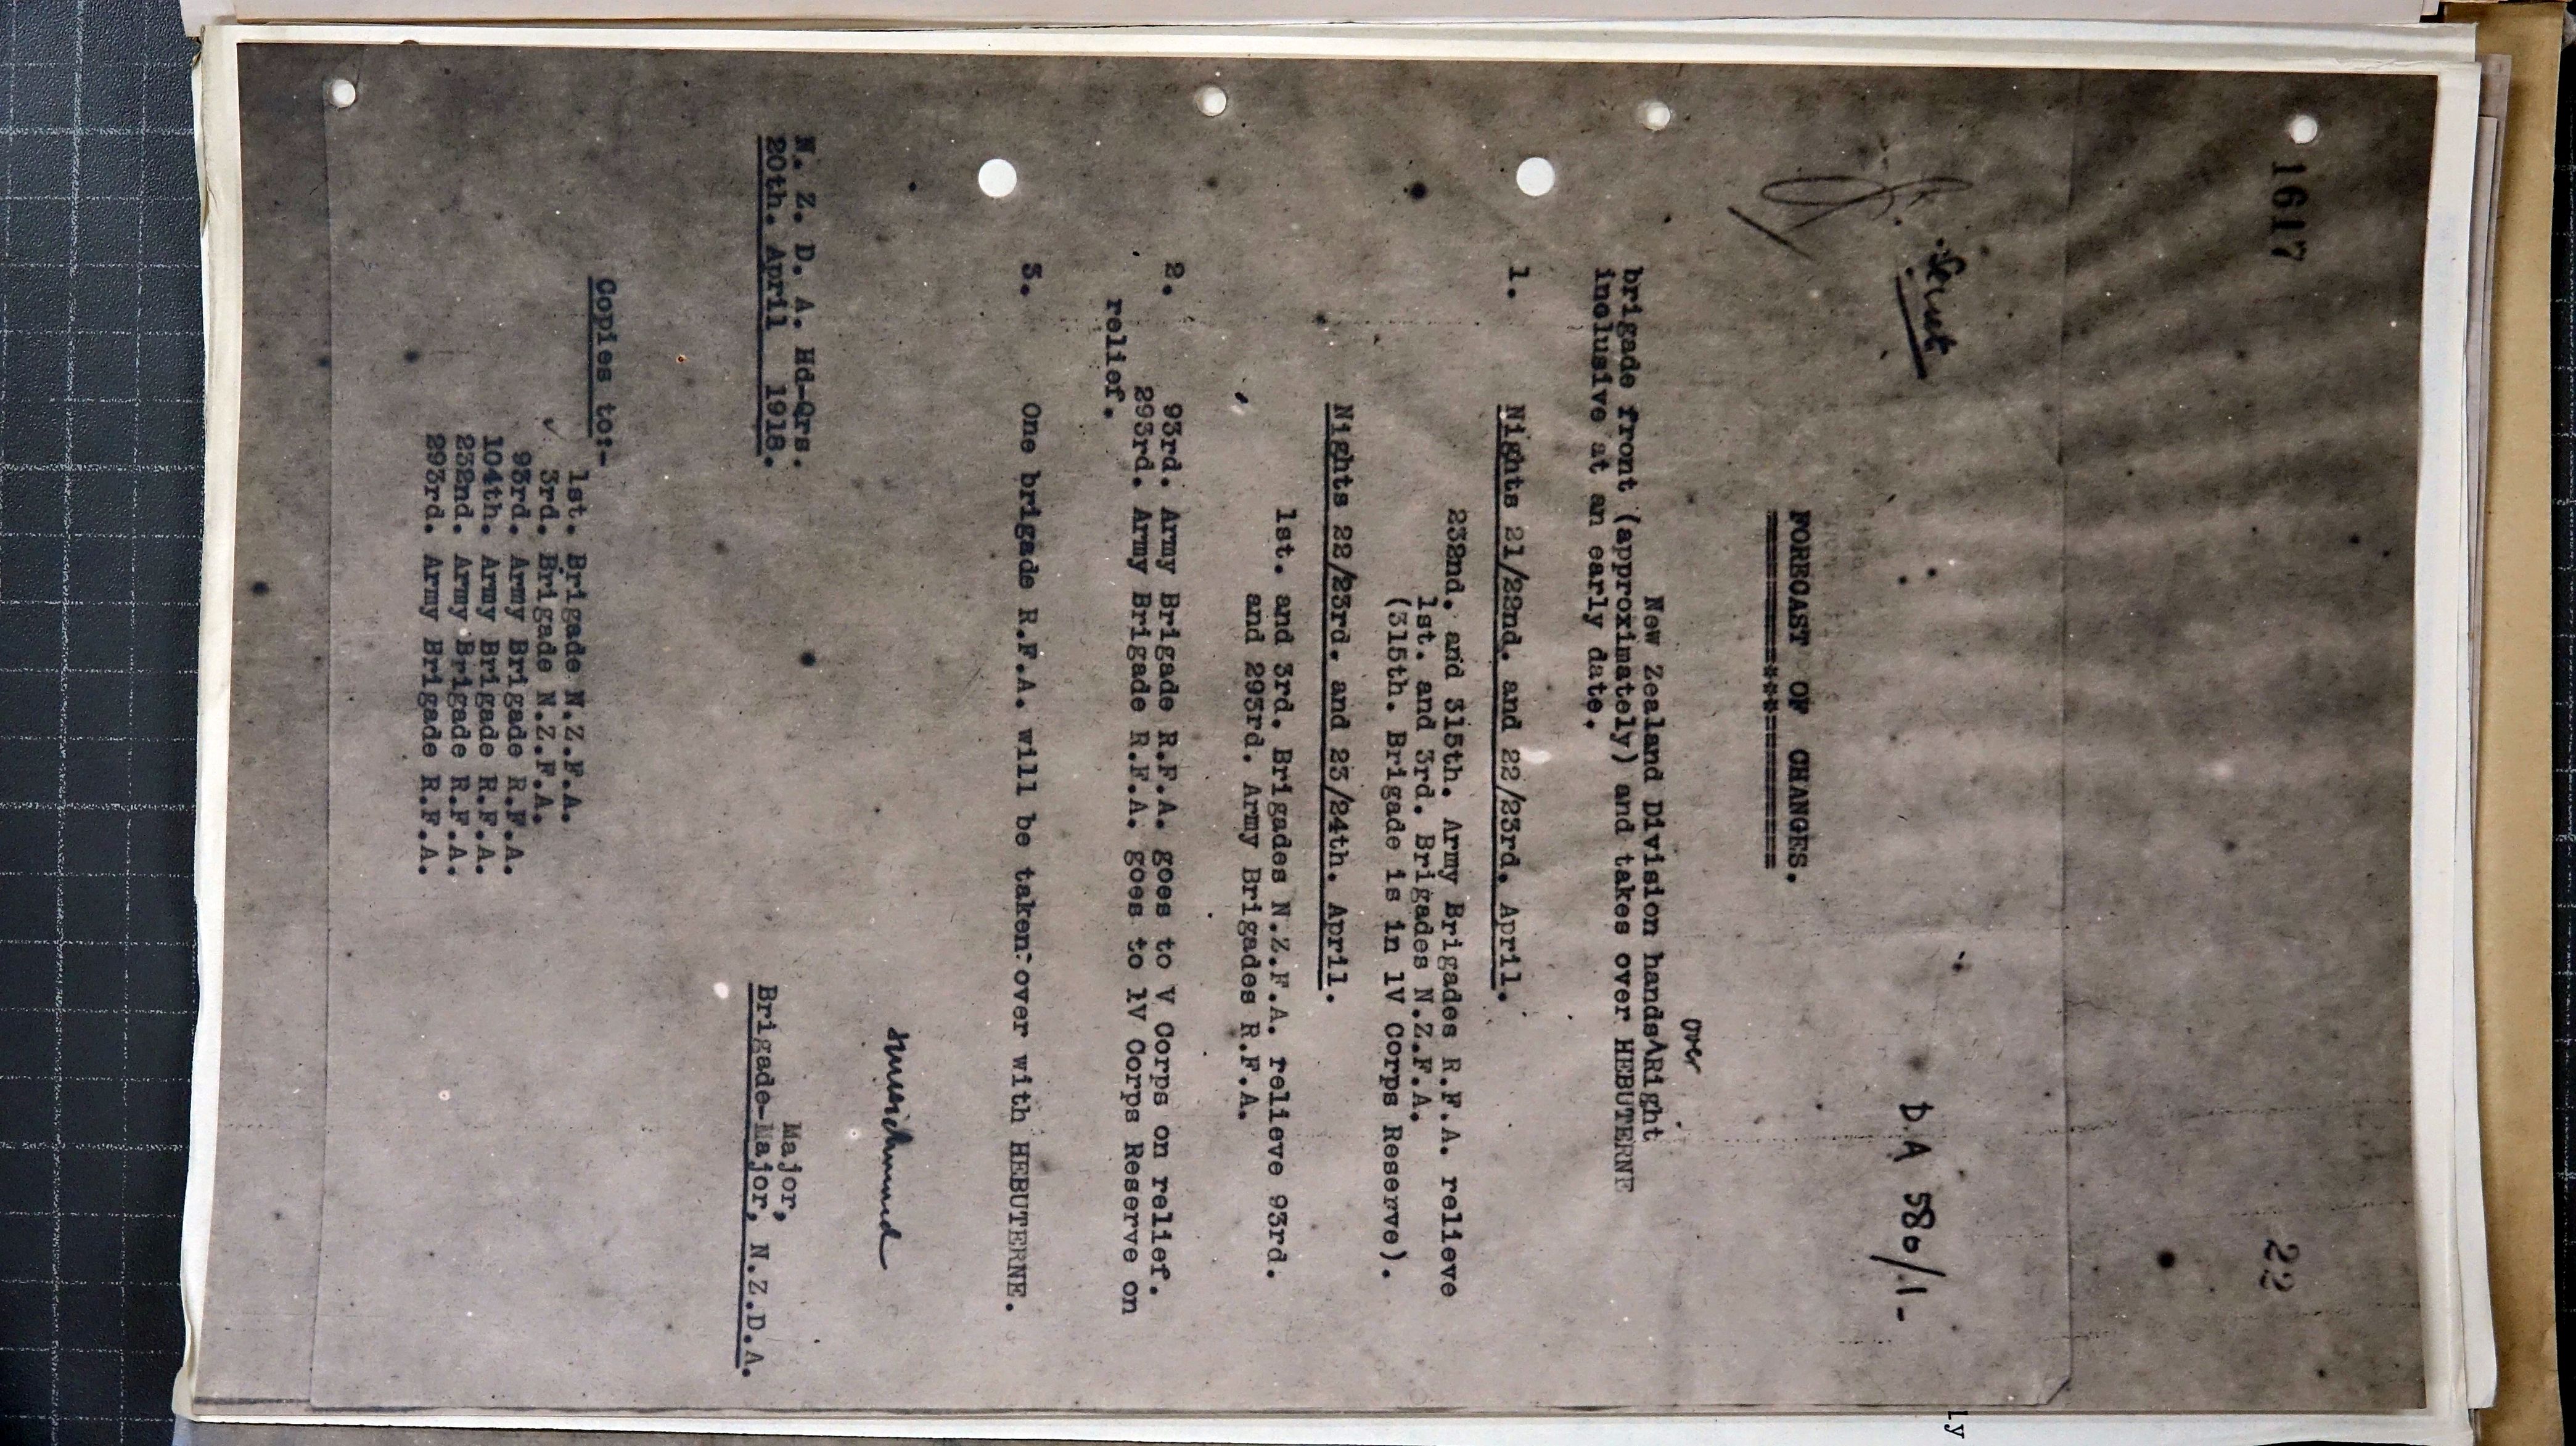 1617
22
Secret
D.A 580/1-
FORECAST OF CHANGES.
over
New Zealand Division hands^Right
brigade front (approximately) and takes over HEBUTERNE
inclusive at an early date.
1. Nights 21/22nd. and 22/23rd. April.
232nd. and 315th. Army Brigades R.F.A. relieve
1st. and 3rd. Brigades N.Z.F.A.
(315th. Brigade is in 1V Corps Reserve).
Nights 22/23rd. and 23/24th. April.
1st. and 3rd. Brigades N.Z.F.A. relieve 93rd.
and 293rd. Army Brigades R.F.A.
2. 93rd. Army Brigade R.F.A. goes to V Corps on relief.
293rd. Army Brigade R.F.A. goes to 1V Corps Reserve on
relief.
3. One brigade R.F.A. will be taken over with HEBUTERNE.
N. Z. D. A. Hd-Qrs.
20th. April 1918.
Major,
Brigade-Major, N.Z.D.A.
Copies to:-
1st. Brigade N.Z.F.A.
✓ 3rd. Brigade N.Z.F.A.
93rd. Army Brigade R.F.A.
104th. Army Brigade R.F.A.
232nd. Army Brigade R.F.A.
293rd. Army Brigade R.F.A.
ly